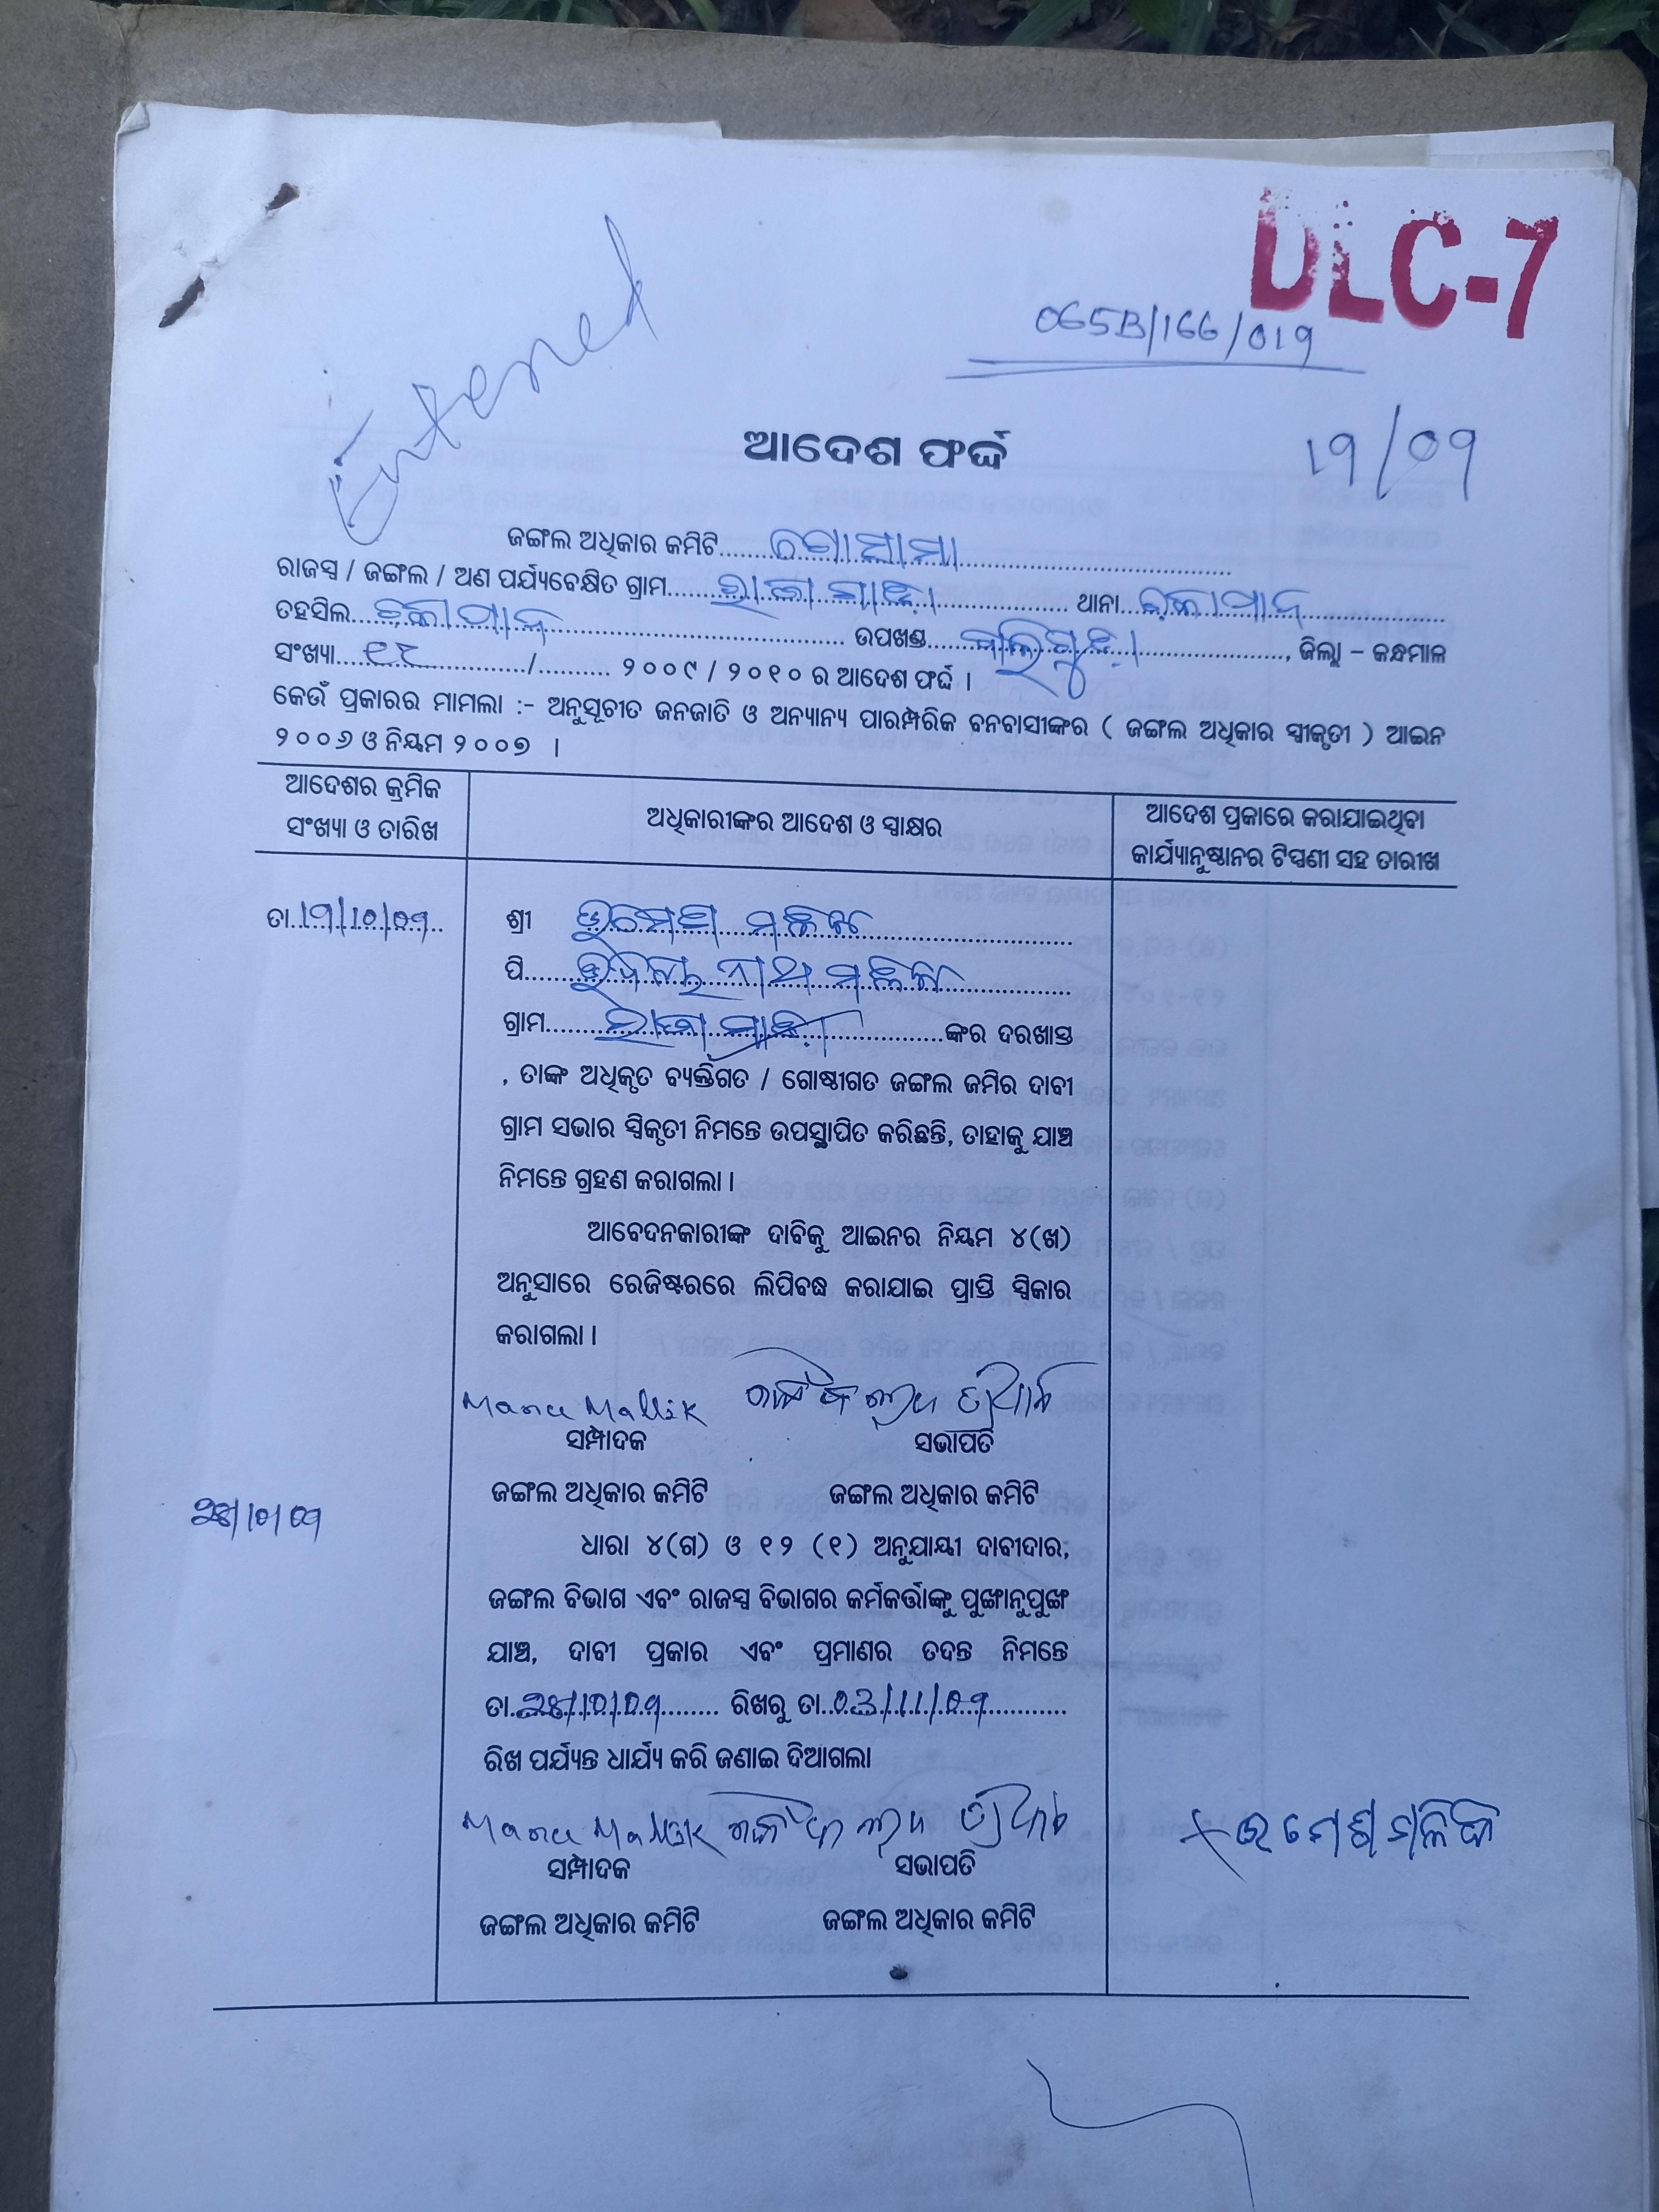 DLC-7
065B/166/019
Entered
19/09
ଆଦେଶ ଫର୍ଦ୍ଦ
ଜଙ୍ଗଲ ଅଧିକାର କମିଟି
ରାଜସ୍ୱ / ଜଙ୍ଗଲ / ଅଣ ପର୍ଯ୍ୟବେକ୍ଷିତ ଗ୍ରାମ ଥାନା
ତହସିଲ ଉପଖଣ୍ଡ , ଜିଲ୍ଲା – କନ୍ଧମାଳ
ସଂଖ୍ୟା / ୨୦୦୯ / ୨୦୧୦ ର ଆଦେଶ ଫର୍ଦ୍ଦ ।
କେଉଁ ପ୍ରକାରର ମାମଲା :- ଅନୁସୂଚୀତ ଜନଜାତି ଓ ଅନ୍ୟାନ୍ୟ ପାରମ୍ପରିକ ବନବାସୀଙ୍କର ( ଜଙ୍ଗଲ ଅଧିକାର ସ୍ୱୀକୃତୀ ) ଆଇନ
୨୦୦୬ ଓ ନିୟମ ୨୦୦୭ ।
ଆଦେଶର କ୍ରମିକ
ସଂଖ୍ୟା ଓ ତାରିଖ
ଅଧିକାରୀଙ୍କର ଆଦେଶ ଓ ସ୍ୱାକ୍ଷର
ଆଦେଶ ପ୍ରକାରେ କରାଯାଇଥିବା
କାର୍ଯ୍ୟାନୁଷ୍ଠାନର ଟିପ୍ପଣୀ ସହ ତାରୀଖ
ତା. 19/10/09
ଶ୍ରୀ ମଲ୍ଲିକ
ପି ମଲ୍ଲିକ
ଗ୍ରାମ ଙ୍କର ଦରଖାସ୍ତ
, ତାଙ୍କ ଅଧିକୃତ ବ୍ୟକ୍ତିଗତ / ଗୋଷ୍ଠୀଗତ ଜଙ୍ଗଲ ଜମିର ଦାବୀ
ଗ୍ରାମ ସଭାର ସ୍ୱିକୃତୀ ନିମନ୍ତେ ଉପସ୍ଥାପିତ କରିଛନ୍ତି, ତାହାକୁ ଯାଞ୍ଚ
ନିମନ୍ତେ ଗ୍ରହଣ କରାଗଲା ।
ଆବେଦନକାରୀଙ୍କ ଦାବିକୁ ଆଇନର ନିୟମ ୪(ଖ)
ଅନୁସାରେ ରେଜିଷ୍ଟରରେ ଲିପିବଦ୍ଧ କରାଯାଇ ପ୍ରାପ୍ତି ସ୍ୱିକାର
କରାଗଲା ।
Manu Mallik
ସମ୍ପାଦକ ସଭାପତି
ଜଙ୍ଗଲ ଅଧିକାର କମିଟି ଜଙ୍ଗଲ ଅଧିକାର କମିଟି
ଧାରା ୪(ଗ) ଓ ୧୨ (୧) ଅନୁଯାୟୀ ଦାବୀଦାର,
ଜଙ୍ଗଲ ବିଭାଗ ଏବଂ ରାଜସ୍ୱ ବିଭାଗର କର୍ମକର୍ତ୍ତାଙ୍କୁ ପୁଙ୍ଖାନୁପୁଙ୍ଖ
ଯାଞ୍ଚ, ଦାବୀ ପ୍ରକାର ଏବଂ ପ୍ରମାଣର ତଦନ୍ତ ନିମନ୍ତେ
ତା. ରିଖରୁ ତା. 03/11/09
ରିଖ ପର୍ଯ୍ୟନ୍ତ ଧାର୍ଯ୍ୟ କରି ଜଣାଇ ଦିଆଗଲା
Manu Mallik
ସମ୍ପାଦକ ସଭାପତି
ଜଙ୍ଗଲ ଅଧିକାର କମିଟି ଜଙ୍ଗଲ ଅଧିକାର କମିଟି